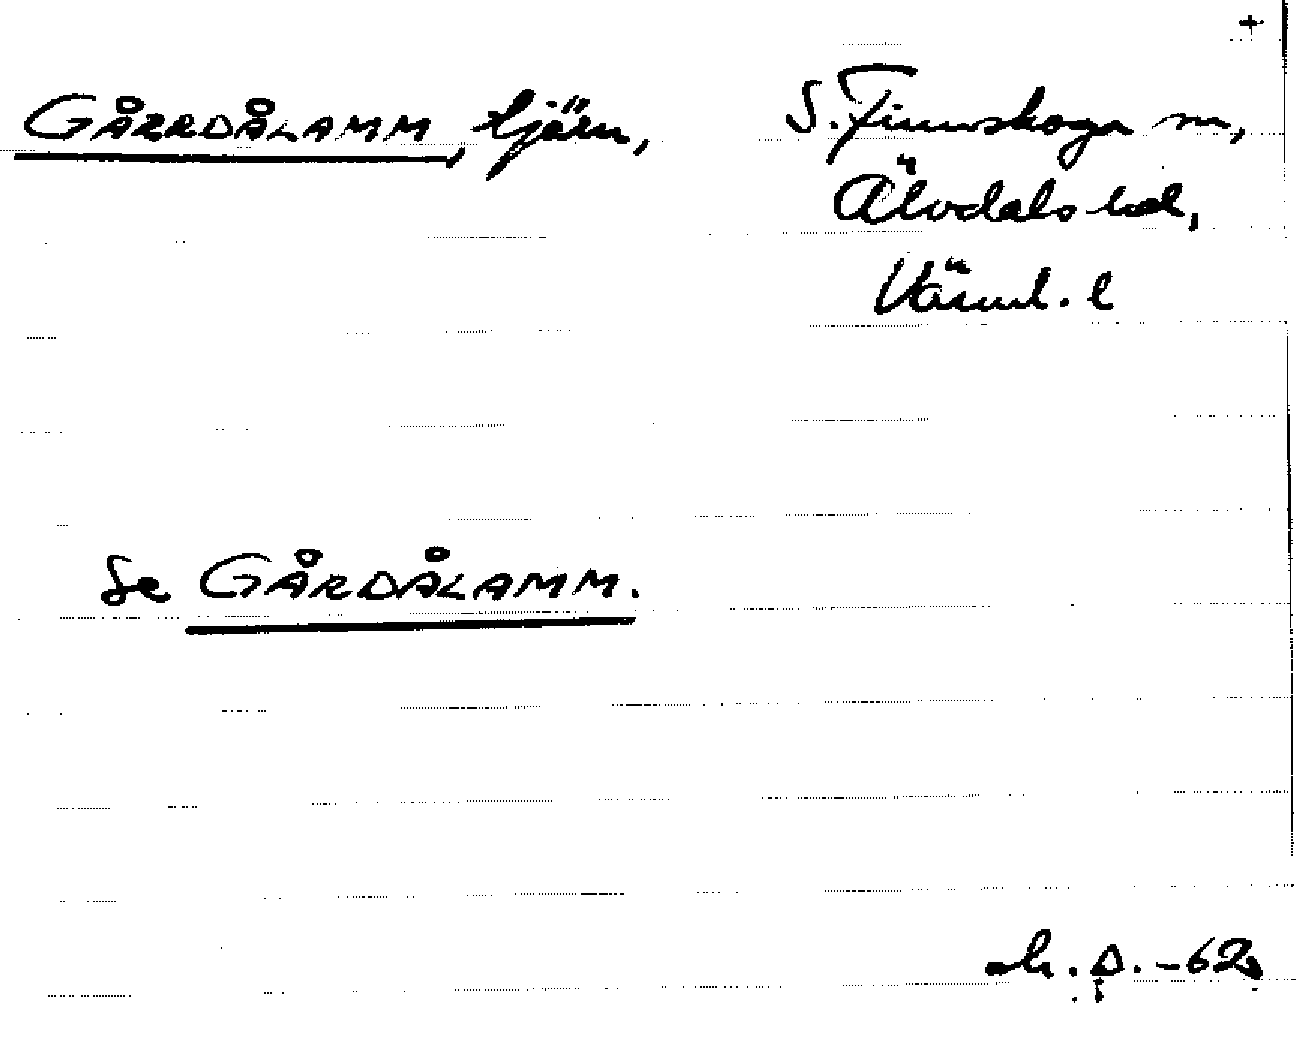 +
GÅRRDÅLAMM, tjärn, S. Finnskoga sn,
Älvdals hd,
Värml. l
Se GÅRDÅLAMM.
-62